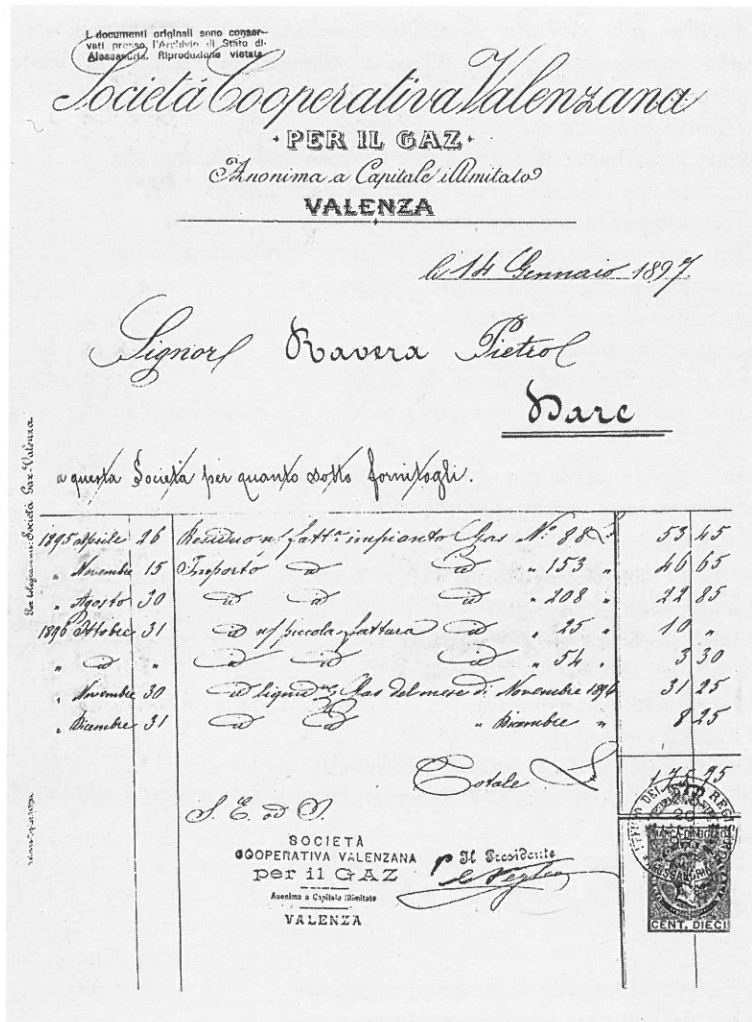 I documenti originali sono conser-
vati presso l'Archivio di Stato di
Alessandria. Riproduzione vietata
Società Cooperativa Valenzana
PER IL GAZ
Anonima a Capitale illimitato
VALENZA
li 14 Gennaio 1897
Signor Ravera Pietro
Dare
a questa Società per quanto sotto fornitogli.
Per telegrammi: Società Gaz-Valenza
1895 aprile 26 Residuo n/ fatt.ª impianto Gas N.° 88 L 53 45
" Novembre 15 Importo id id " 153 " 46 65
" Agosto 30 id id id " 208 " 22 85
1896 Ottobre 31 id n/ piccola fattura id " 25 " 10 "
" id " id id id " 54 " 3 30
" Novembre 30 id Gas del mese di Novembre 1896 31 25
" Dicembre 31 id id " Dicembre " 8 25
Totale L 175 95
S. E. od O.
SOCIETÀ
COOPERATIVA VALENZANA
per il GAZ
Anonima a Capitale illimitato
VALENZA
Il Presidente
CENT. DIECI